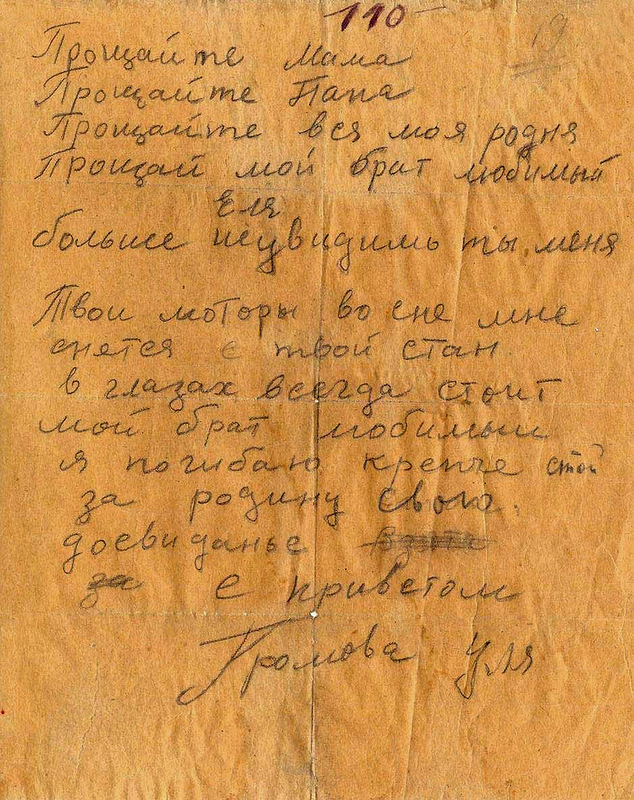 110
19
Прощайте Мама
Прощайте Папа
Прощайте вся моя родня
Прощай мой брат любимый
Еля
больше неувидишь ты меня
Твои моторы во сне мне
снется є твой стан
в глазах всегда стоит
мой брат любимый
я погибаю крепче стой
за родину свою.
досвиданье
за
С приветом
Громова Уля